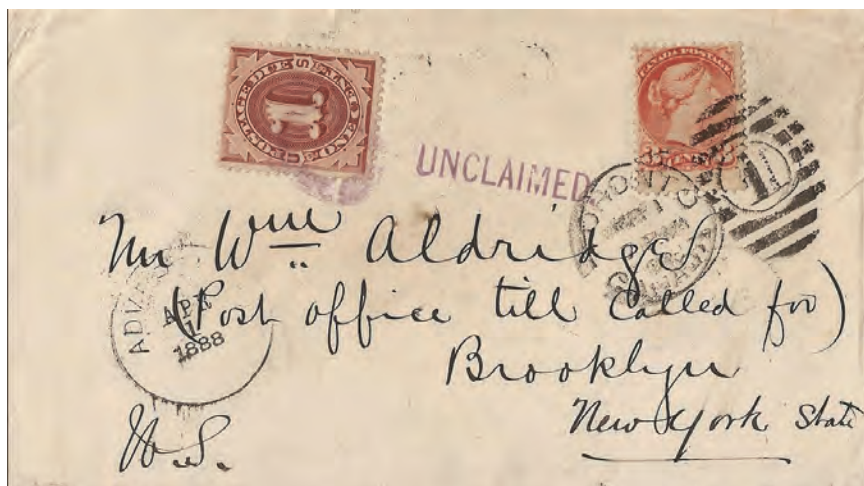 POSTAGE DUE
1
ONE CENT
CANADA POSTAGE
3 CENTS 3
UNCLAIMED
TORONTO
1
Mr Wm Aldridge
(Post office till Called for)
Brooklyn
New York State
U.S.
ADV
APR
1
1888